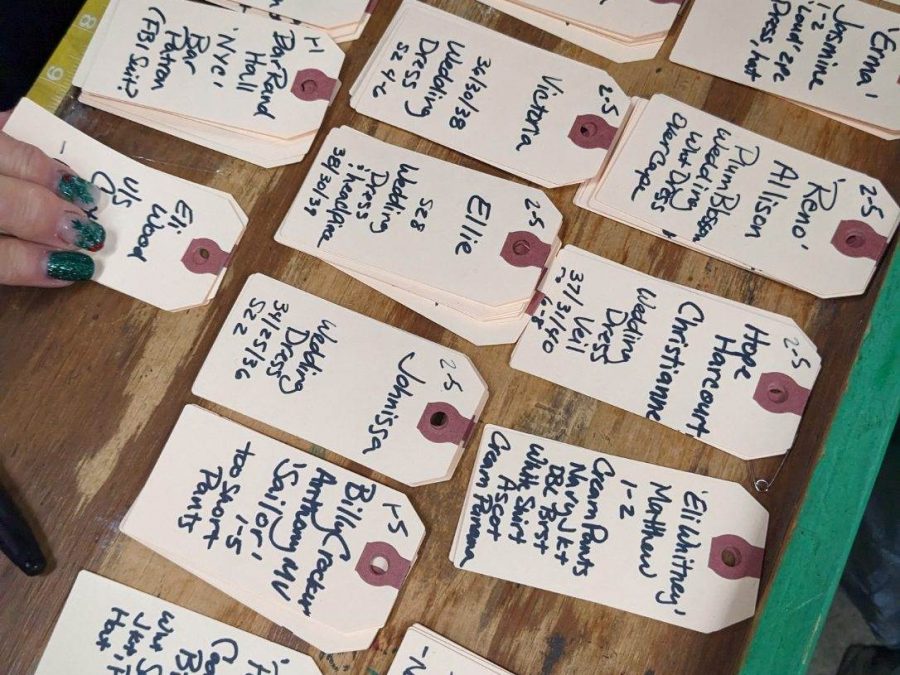 8
9
1-1
Bar Read
Hall
'NYC'
Bar
Patron
(FBI Suit?)
2-5
Victoria
36/30/38
Wedding
Dress
Sz 4-6
'Erma'
Jasmine
1-2
Dress, hat
2-5
'Reno'
Allison
Plum Blossom
Wedding
Wht Dress
Over Cape
Eli
Wood
U/S
2-5
Ellie
Sz 8
Wedding
Dress
38/30/39
2-5
Hope
Harcourt
Christianne
Wedding
Dress
Veil
37/31/40
6-8
2-5
Johnissa
Wedding
Dress
34/25/36
Sz 2
1-5
Billy Crocker
Anthony MV
'Sailor'
1-5
too Short
Pants
'Eli Whitney'
Matthew
1-2
Cream Pants
Navy Jkt
DBL Brst
White Shirt
Ascot